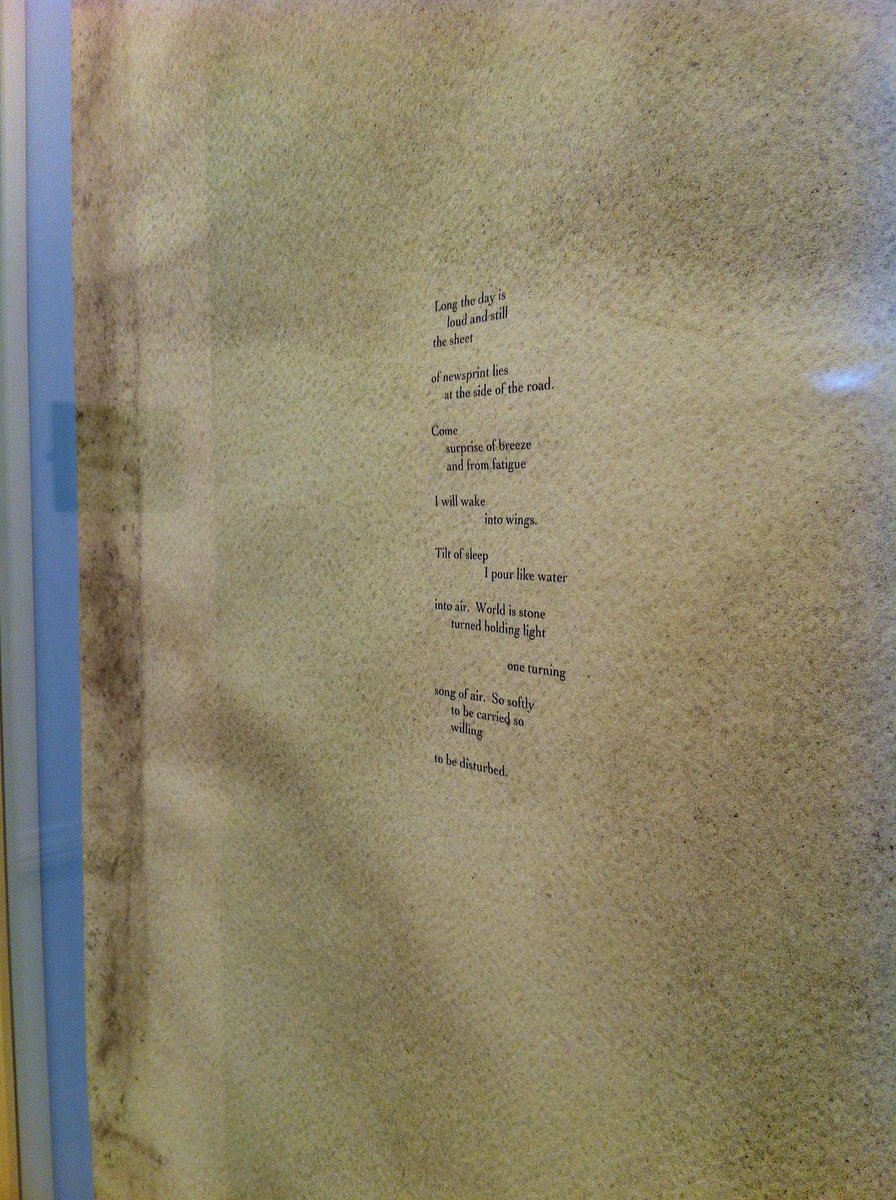 Long the day is
loud and still
the sheet
of newsprint lies
at the side of the road.
Come
surprise of breeze
and from fatigue
I will wake
into wings.
Tilt of sleep
I pour like water
into air. World is stone
turned holding light
one turning
song of air. So softly
to be carried so
willing
to be disturbed.